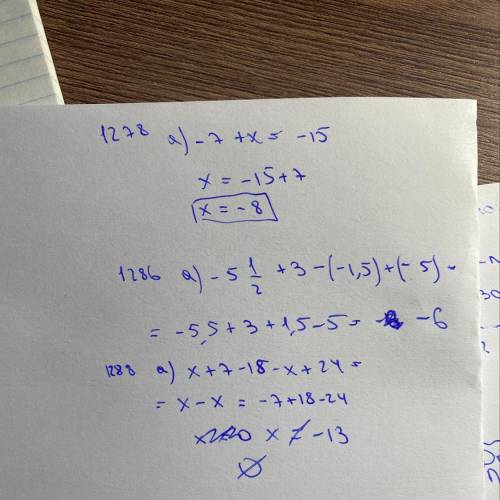 1278 а) -7 + x = -15
x = -15 + 7
x = -8
1286 а) -5 1/2 + 3 - (-1,5) + (-5) -
= -5,5 + 3 + 1,5 - 5 = -6
1288 а) x + 7 - 18 - x + 24 =
= x - x = -7 + 18 - 24
x ≠ -13
∅